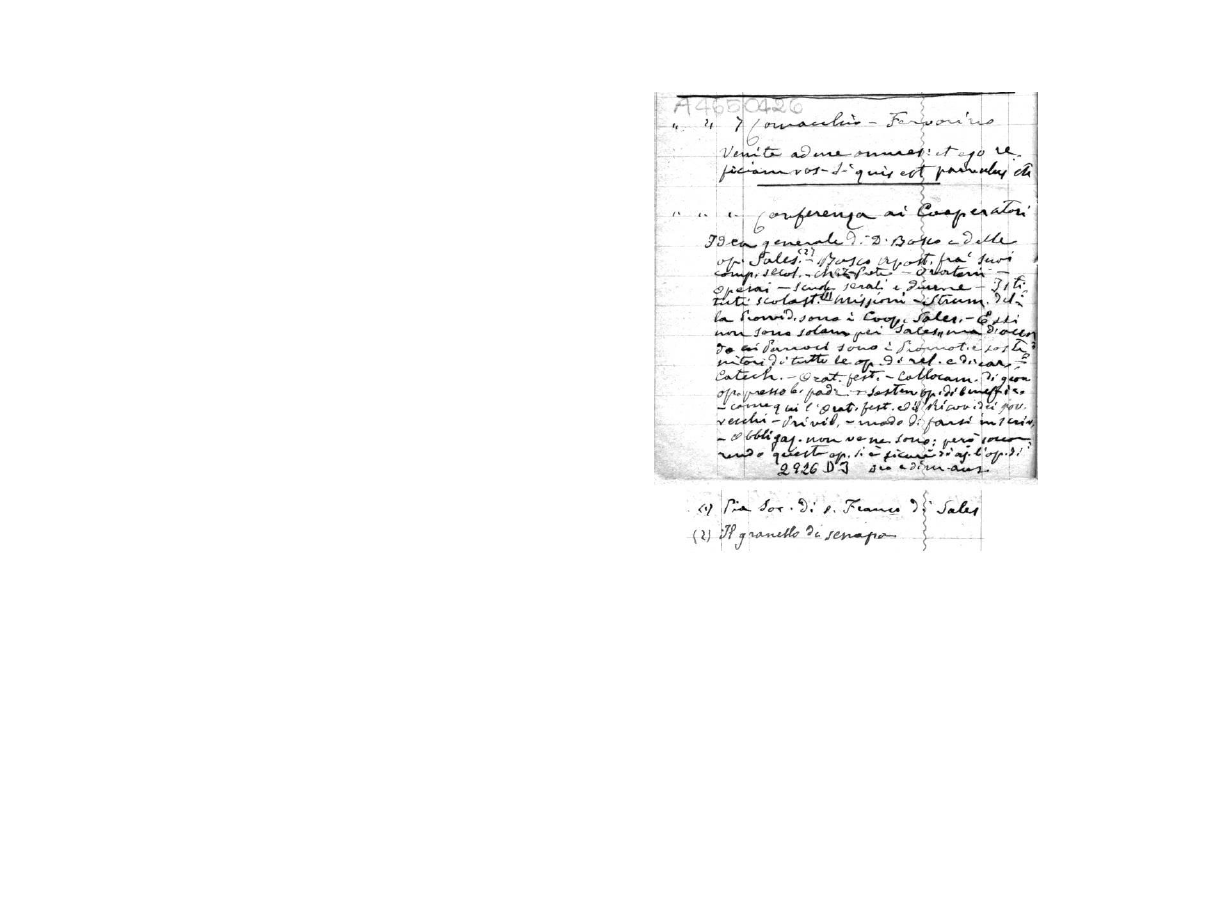 A4650426
" 4 7 Comacchio - Fervorino
Venite ad me omnes: et ego re
ficiam vos - Si quis est parvulus etc
" " " Conferenza ai Cooperatori
Idea generale di D. Bosco e delle
op. Sales. (2) - Bosco apost. fra' suoi
comp. secol. - Oratorii -
Operai - Scuole serali e diurne - Isti
tuti scolast. (1) missioni - Strum. del
la Provvid. sono i Coop. Sales. - Essi
non sono solam. pei Sales. ma
ai Parroci sono i Promot. e soste
nitori di tutte le op. di rel. e di car.
Catech. - Orat. fest. - Collocam. di giov.
op. presso b. padr. - Sosten. op. di benefic.
- come qui l'Orat. fest. ed il Ricov. dei pov.
vecchi - Privil. - modo di farsi inscriv.
- Obbligaz. non ve ne sono; però soccor
rendo queste op. si è sicuri di aj. l'op. di
2926 D J
(1) Pia Soc. di S. Franco di Sales
(2) Il granello di senapa